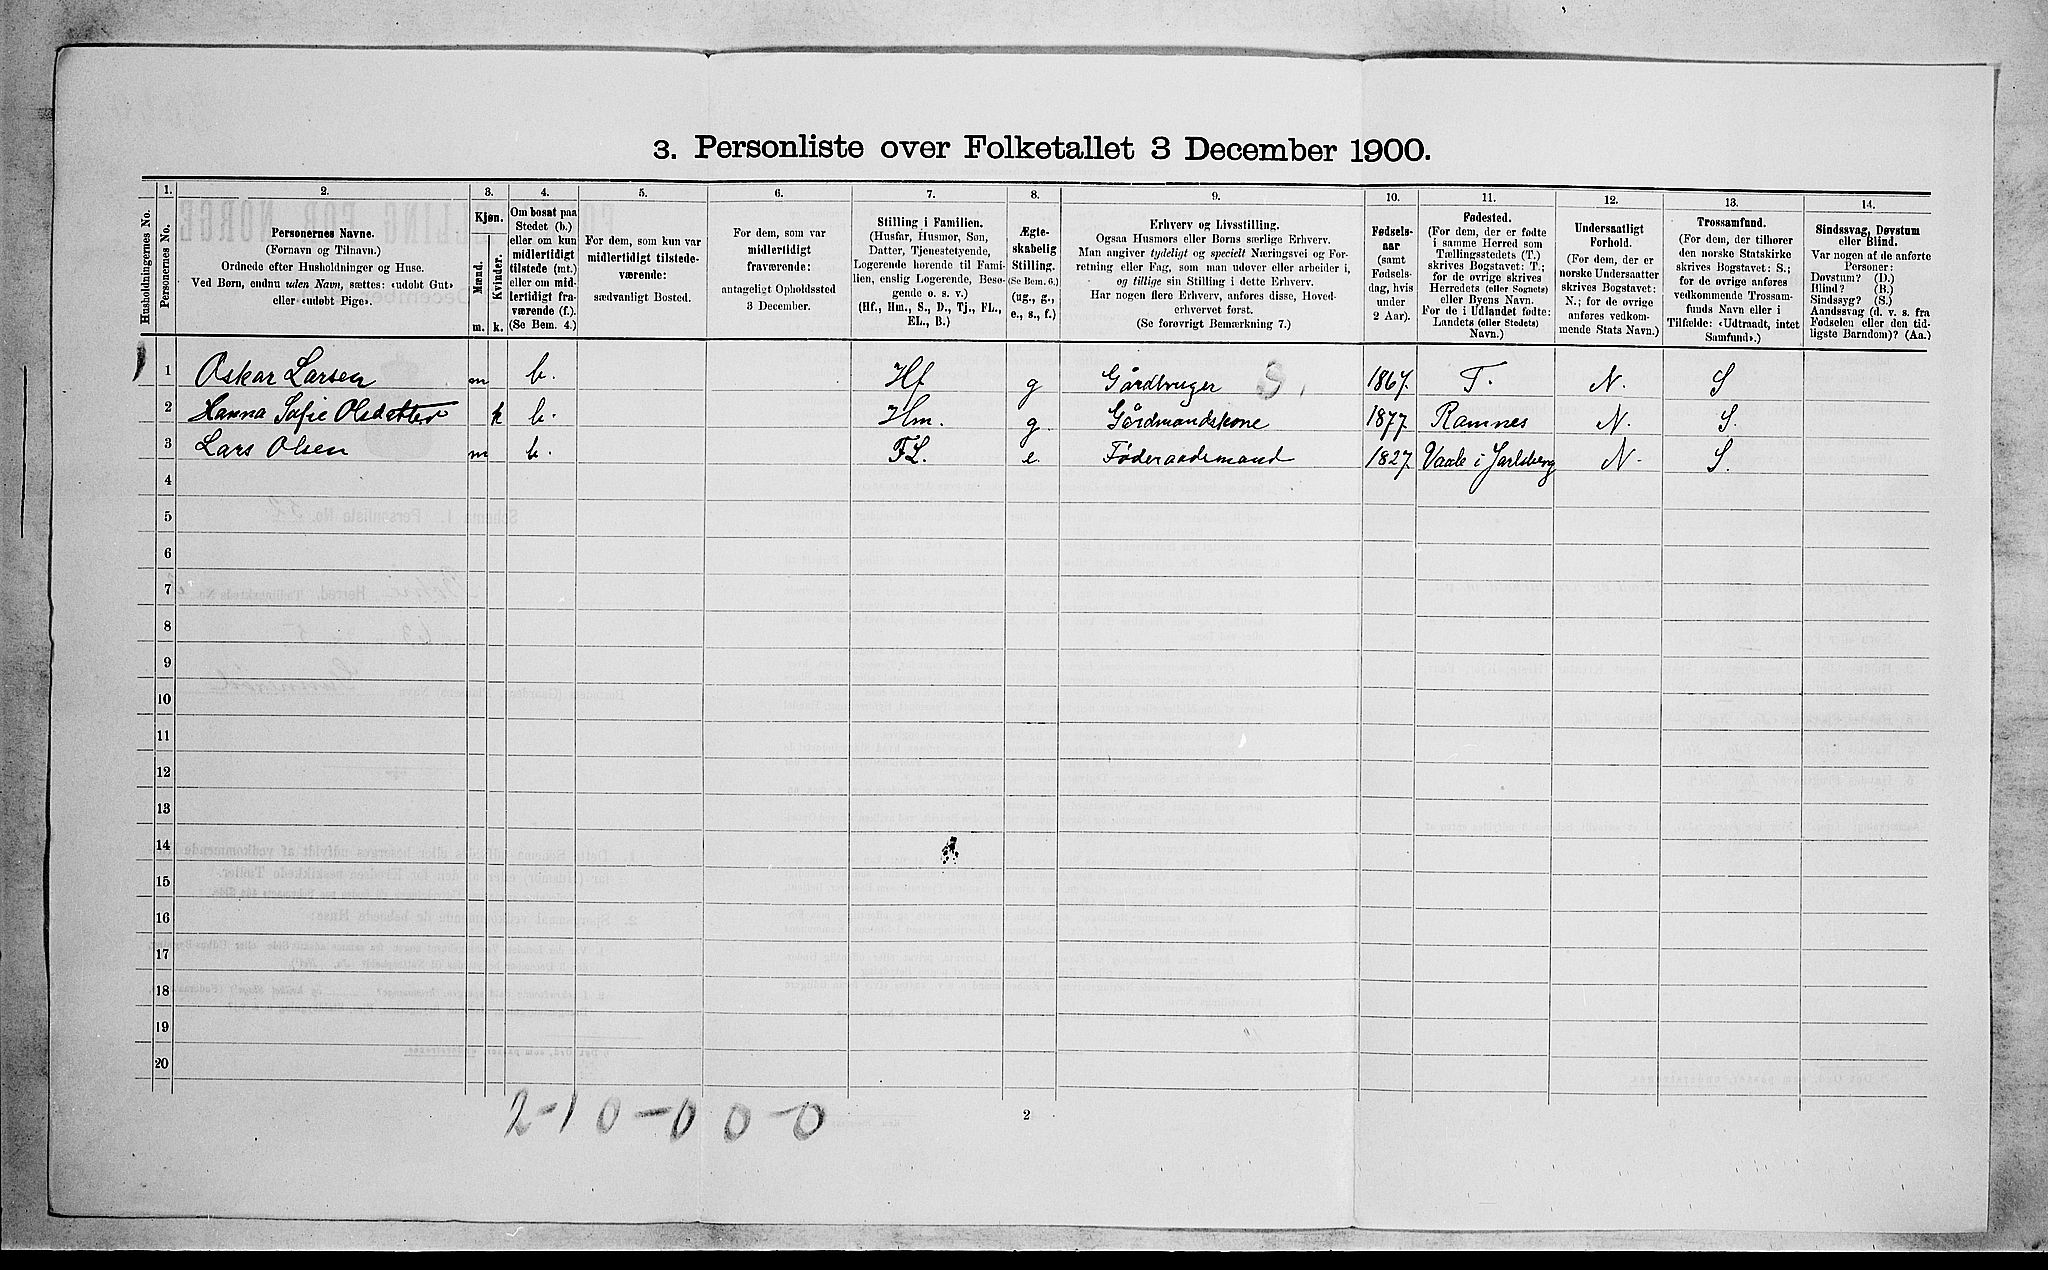 3. Personliste over Folketallet 3 December 1900.
Husholdningernes No.
1.
Personernes No.
2.
Personernes Navne.
(Fornavn og Tilnavn.)
Ordnede efter Husholdninger og Huse.
Ved Børn, endnu uden Navn, sættes: «udøbt Gut»
eller «udøbt Pige».
3.
Kjøn.
Mænd.
Kvinder.
m.
k.
4.
Om bosat paa
Stedet (b.)
eller om kun
midlertidigt
tilstede (mt.)
eller om mid-
lertidigt fra-
værende (f.).
(Se Bem. 4.)
5.
For dem, som kun var
midlertidigt tilstede-
værende:
sædvanligt Bosted.
6.
For dem, som var
midlertidigt
fraværende:
antageligt Opholdssted
3 December.
7.
Stilling i Familien.
(Husfar, Husmor, Søn,
Datter, Tjenestetyende,
Logerende hørende til Fami-
lien, enslig Logerende, Besø-
gende o. s. v.)
(Hf., Hm., S., D., Tj., FL.,
EL., B.)
8.
Ægte-
skabelig
Stilling.
(Se Bem. 6.)
(ug., g.,
e., s., f.)
9.
Erhverv og Livsstilling.
Ogsaa Husmors eller Børns særlige Erhverv.
Man angiver tydeligt og specielt Næringsvei og For-
retning eller Fag, som man udøver eller arbeider i,
og tillige sin Stilling i dette Erhverv.
Har nogen flere Erhverv, anføres disse, Hoved-
erhvervet først.
(Se forøvrigt Bemærkning 7.)
10.
Fødsels-
aar
(samt
Fødsels-
dag, hvis
under
2 Aar).
11.
Fødested.
(For dem, der er fødte
i samme Herred som
Tællingsstedets (T.)
skrives Bogstavet: T.;
for de øvrige skrives
Herredets (eller Sognets)
eller Byens Navn.
For de i Udlandet fødte:
Landets (eller Stedets)
Navn.)
12.
Undersaatligt
Forhold.
(For dem, der er
norske Undersaatter
skrives Bogstavet:
N.; for de øvrige
anføres vedkom-
mende Stats Navn.)
13.
Trossamfund.
(For dem, der tilhører
den norske Statskirke
skrives Bogstavet: S.;
for de øvrige anføres
vedkommende Trossam-
funds Navn eller i
Tilfælde: «Udtraadt, intet
Samfund».)
14.
Sindssvag, Døvstum
eller Blind.
Var nogen af de anførte
Personer:
Døvstum? (D.)
Blind? (B.)
Sindssyg? (S.)
Aandssvag (d. v. s. fra
Fødselen eller den tid-
ligste Barndom)? (Aa.)
1 Oskar Larsen m b. Hf g Gårdbruger 1867. T. N. S
2 Hanna Sofie Olsdatter k b. Hm. g Gårdmandskone 1877. Ramnes N. S.
3 Lars Olsen m b. FL. e. Føderaadsmand 1827. Vaale i Jarlsberg N. S.
4
5
6
7
8
9
10
11
12
13
14
15
16
17
18
19
20
2-10-00-0
2